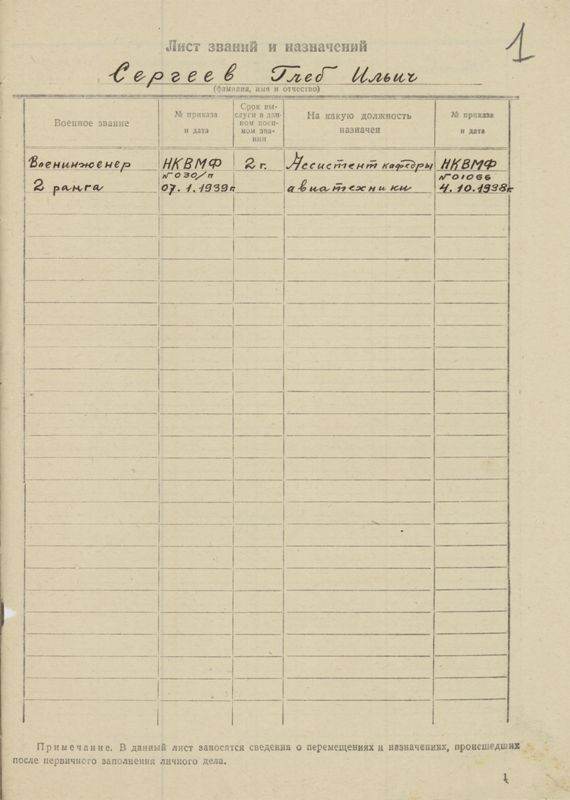 1
Лист званий и назначений
Сергеев Глеб Ильич
(фамилия, имя и отчество)
Военное звание
№ приказа
и дата
Срок вы-
слуги в дан-
ном воен-
ном зва-
нии
На какую должность
назначен
№ приказа
и дата
Военинженер НКВМФ 2 г. Ассистент кафедры НКВМФ
№030/п №01066
2 ранга 07.1.1939г авиатехники 4.10.1938г.
Примечание. В данный лист заносятся сведения о перемещениях и назначениях, происшедших
после первичного заполнения личного дела.
1